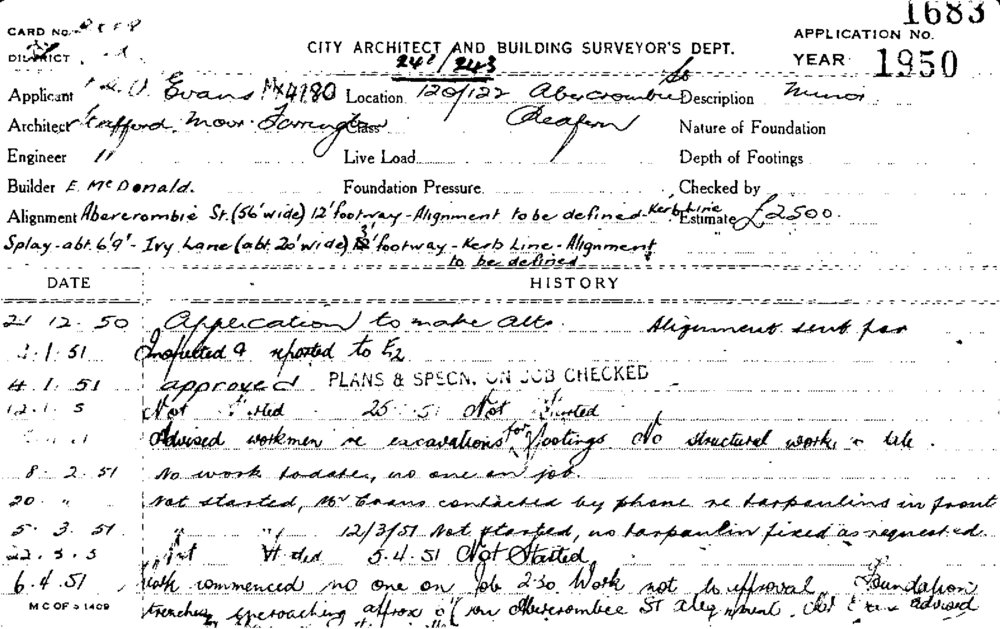 1683
CARD No.
APPLICATION No.
DISTRICT
CITY ARCHITECT AND BUILDING SURVEYOR'S DEPT.
YEAR 1950
242/243
Applicant Evans MX4180 Location 120/122 Abercrombie St Description Minor
Architect Trafford, Moor Farrington Class Nature of Foundation
Engineer " Live Load Depth of Footings
Builder E. McDonald. Foundation Pressure Checked by
Alignment Abercrombie St. (56' wide) 12' footway - Alignment to be defined - Kerb Line Estimate £2500.
Splay - abt. 6'9" - Ivy Lane (abt. 20' wide) 3' footway - Kerb Line - Alignment
to be defined
DATE HISTORY
21.12.50 Application to make alts. Alignment sent for
.1.51 Inspected & reported to
4.1.51 approved PLANS & SPECN. ON JOB CHECKED
12.1.5 Not Started 25 51 Not Started
Advised workmen re excavations for footings No structural work to date.
8.2.51 No work todate, no one on job.
20 " Not started, Mr Evans contacted by phone re tarpaulins in front
5.3.51 " " 12/3/51 Not started, no tarpaulin fixed as requested.
22.3.5 Not Started 5.4.51 Not Started
6.4.51 Work commenced no one on Job 2.30 Work not to approval Foundation
M C OF S 1409 trenches encroaching approx on Abercrombie St alignment. advised